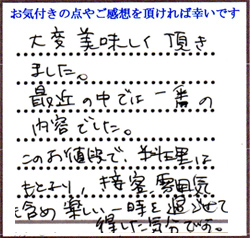 お気付きの点やご感想を頂ければ幸いです
大変美味しく頂き
ました。
最近の中では一番の
内容でした。
このお値段で、お料理は
もとより、接客、雰囲気
含め楽しい一時を過ごせて
得した気分です。